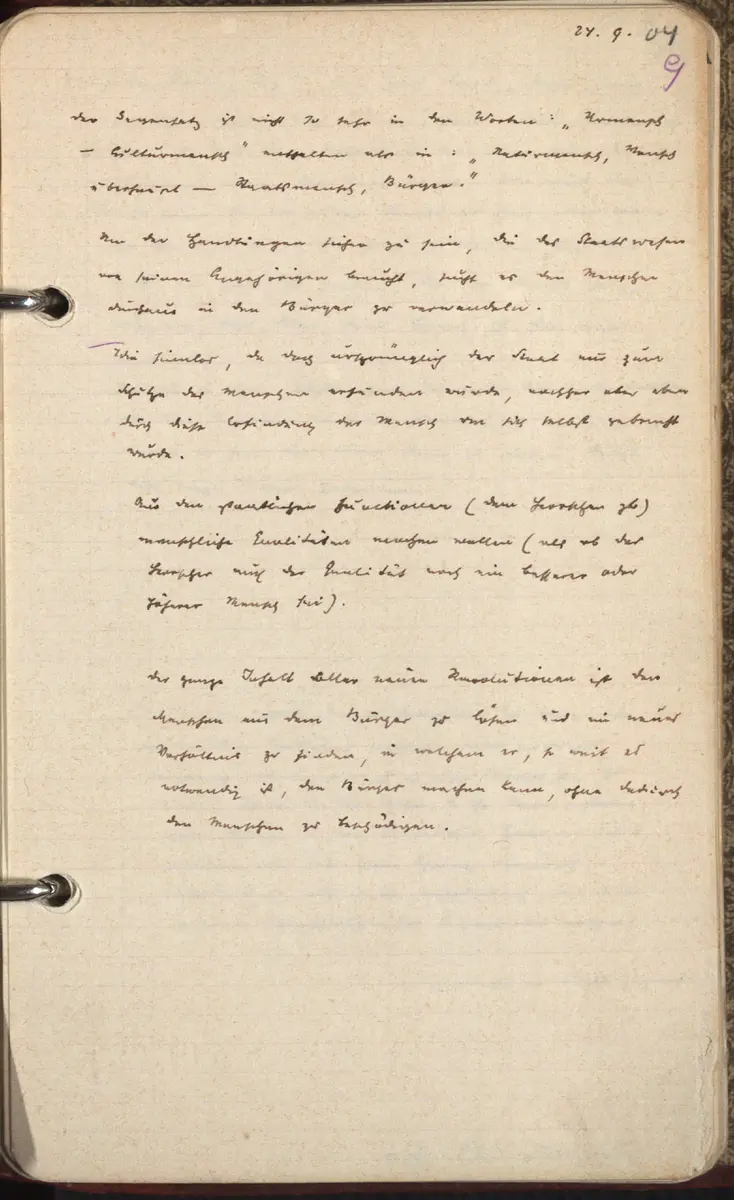 24. 9. 04
9
der Gegensatz ist nicht so sehr in den Worten: „Urmensch
— Culturmensch" enthalten als in: „Naturmensch, Mensch
überhaupt — Staatsmensch, Bürger."
Um der Handlungen sicher zu sein, die das Staatswesen
von seinen Angehörigen braucht, sucht es den Menschen
durchaus in den Bürger zu verwandeln.
sinnlos, da doch ursprünglich der Staat nur zum
Schutze des Menschen erfunden wurde, nachher aber eben
durch diese Erfindung der Mensch um sich selbst gebracht
wurde.
Aus den staatlichen Functionen (dem Herrschen zb)
menschliche Qualitäten machen wollen (als ob der
Herrscher auch der Qualität nach ein besserer oder
höherer Mensch sei).
Der ganze Inhalt aller neuen Revolutionen ist den
Menschen aus dem Bürger zu lösen und ein neues
Verhältnis zu finden, in welchem er, so weit es
notwendig ist, den Bürger machen kann, ohne dadurch
den Menschen zu beschädigen.